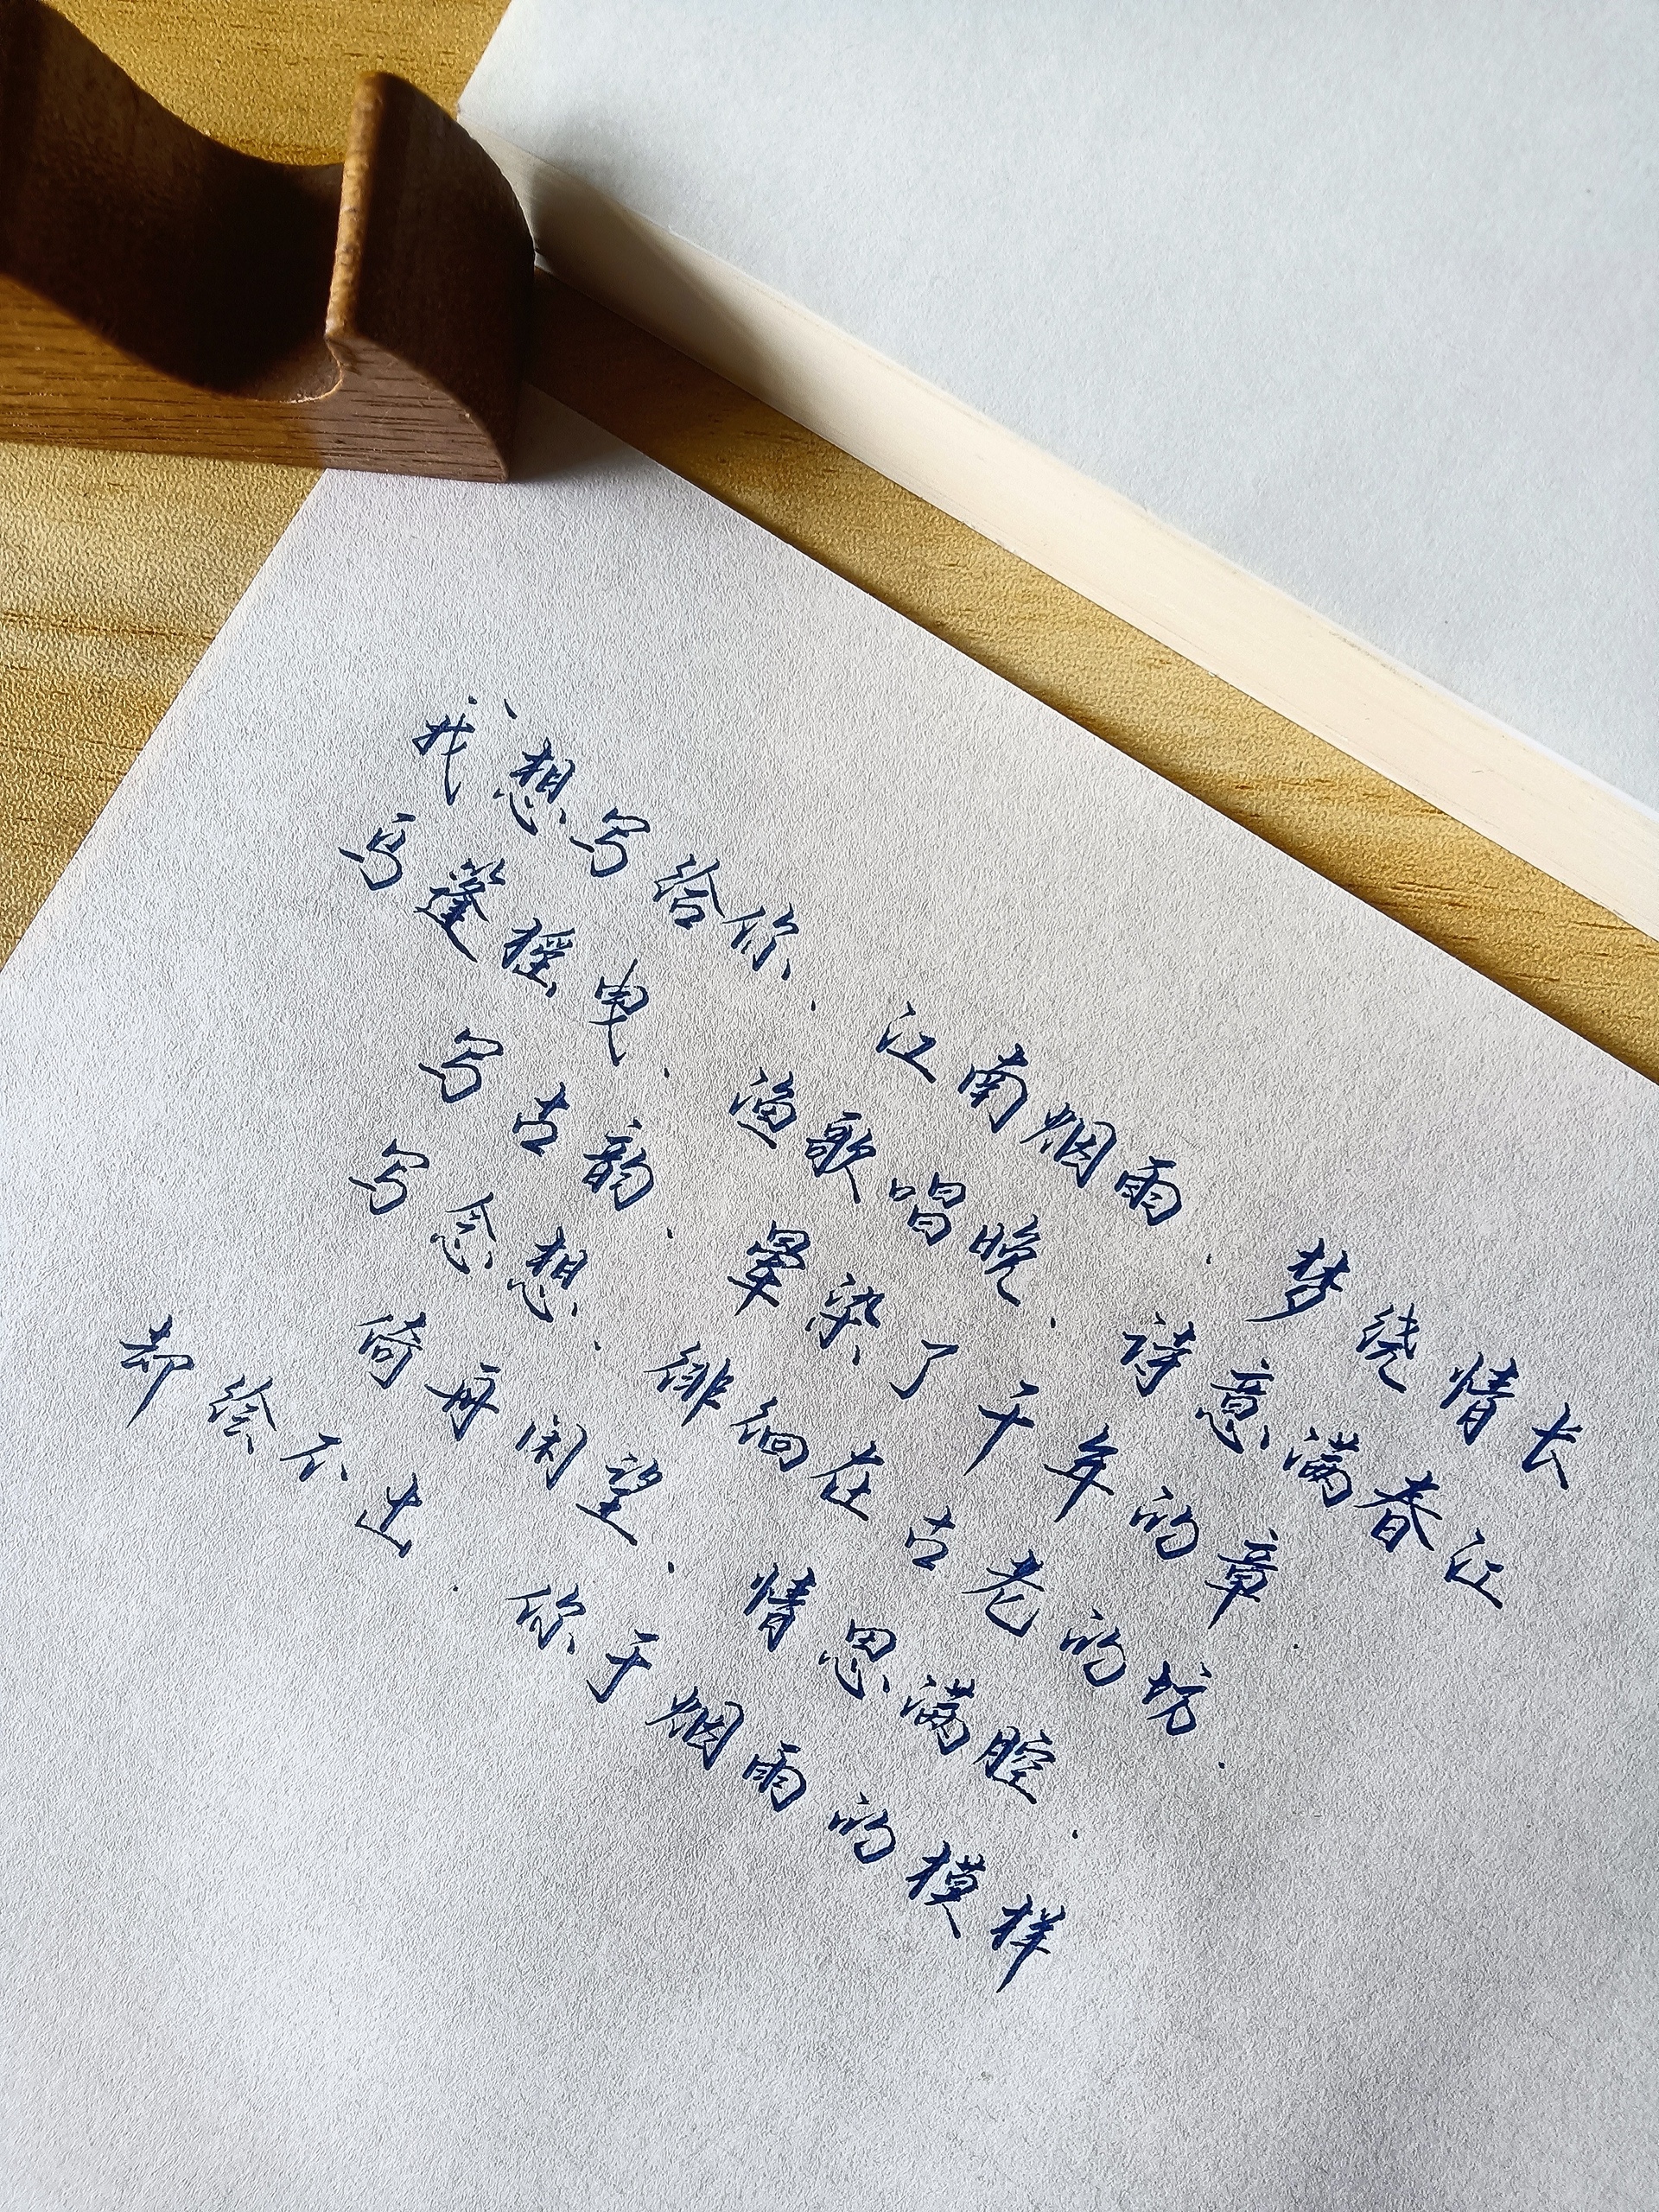 我想写给你、江南烟雨.梦绕情长
乌蓬摇曳、渔歌唱晚、诗意满春江
写古韵.晕染了千年的章.
写念想.徘徊在古老的坊.
倚舟闲望、情思满腔.
却绘不出.你于烟雨的模样